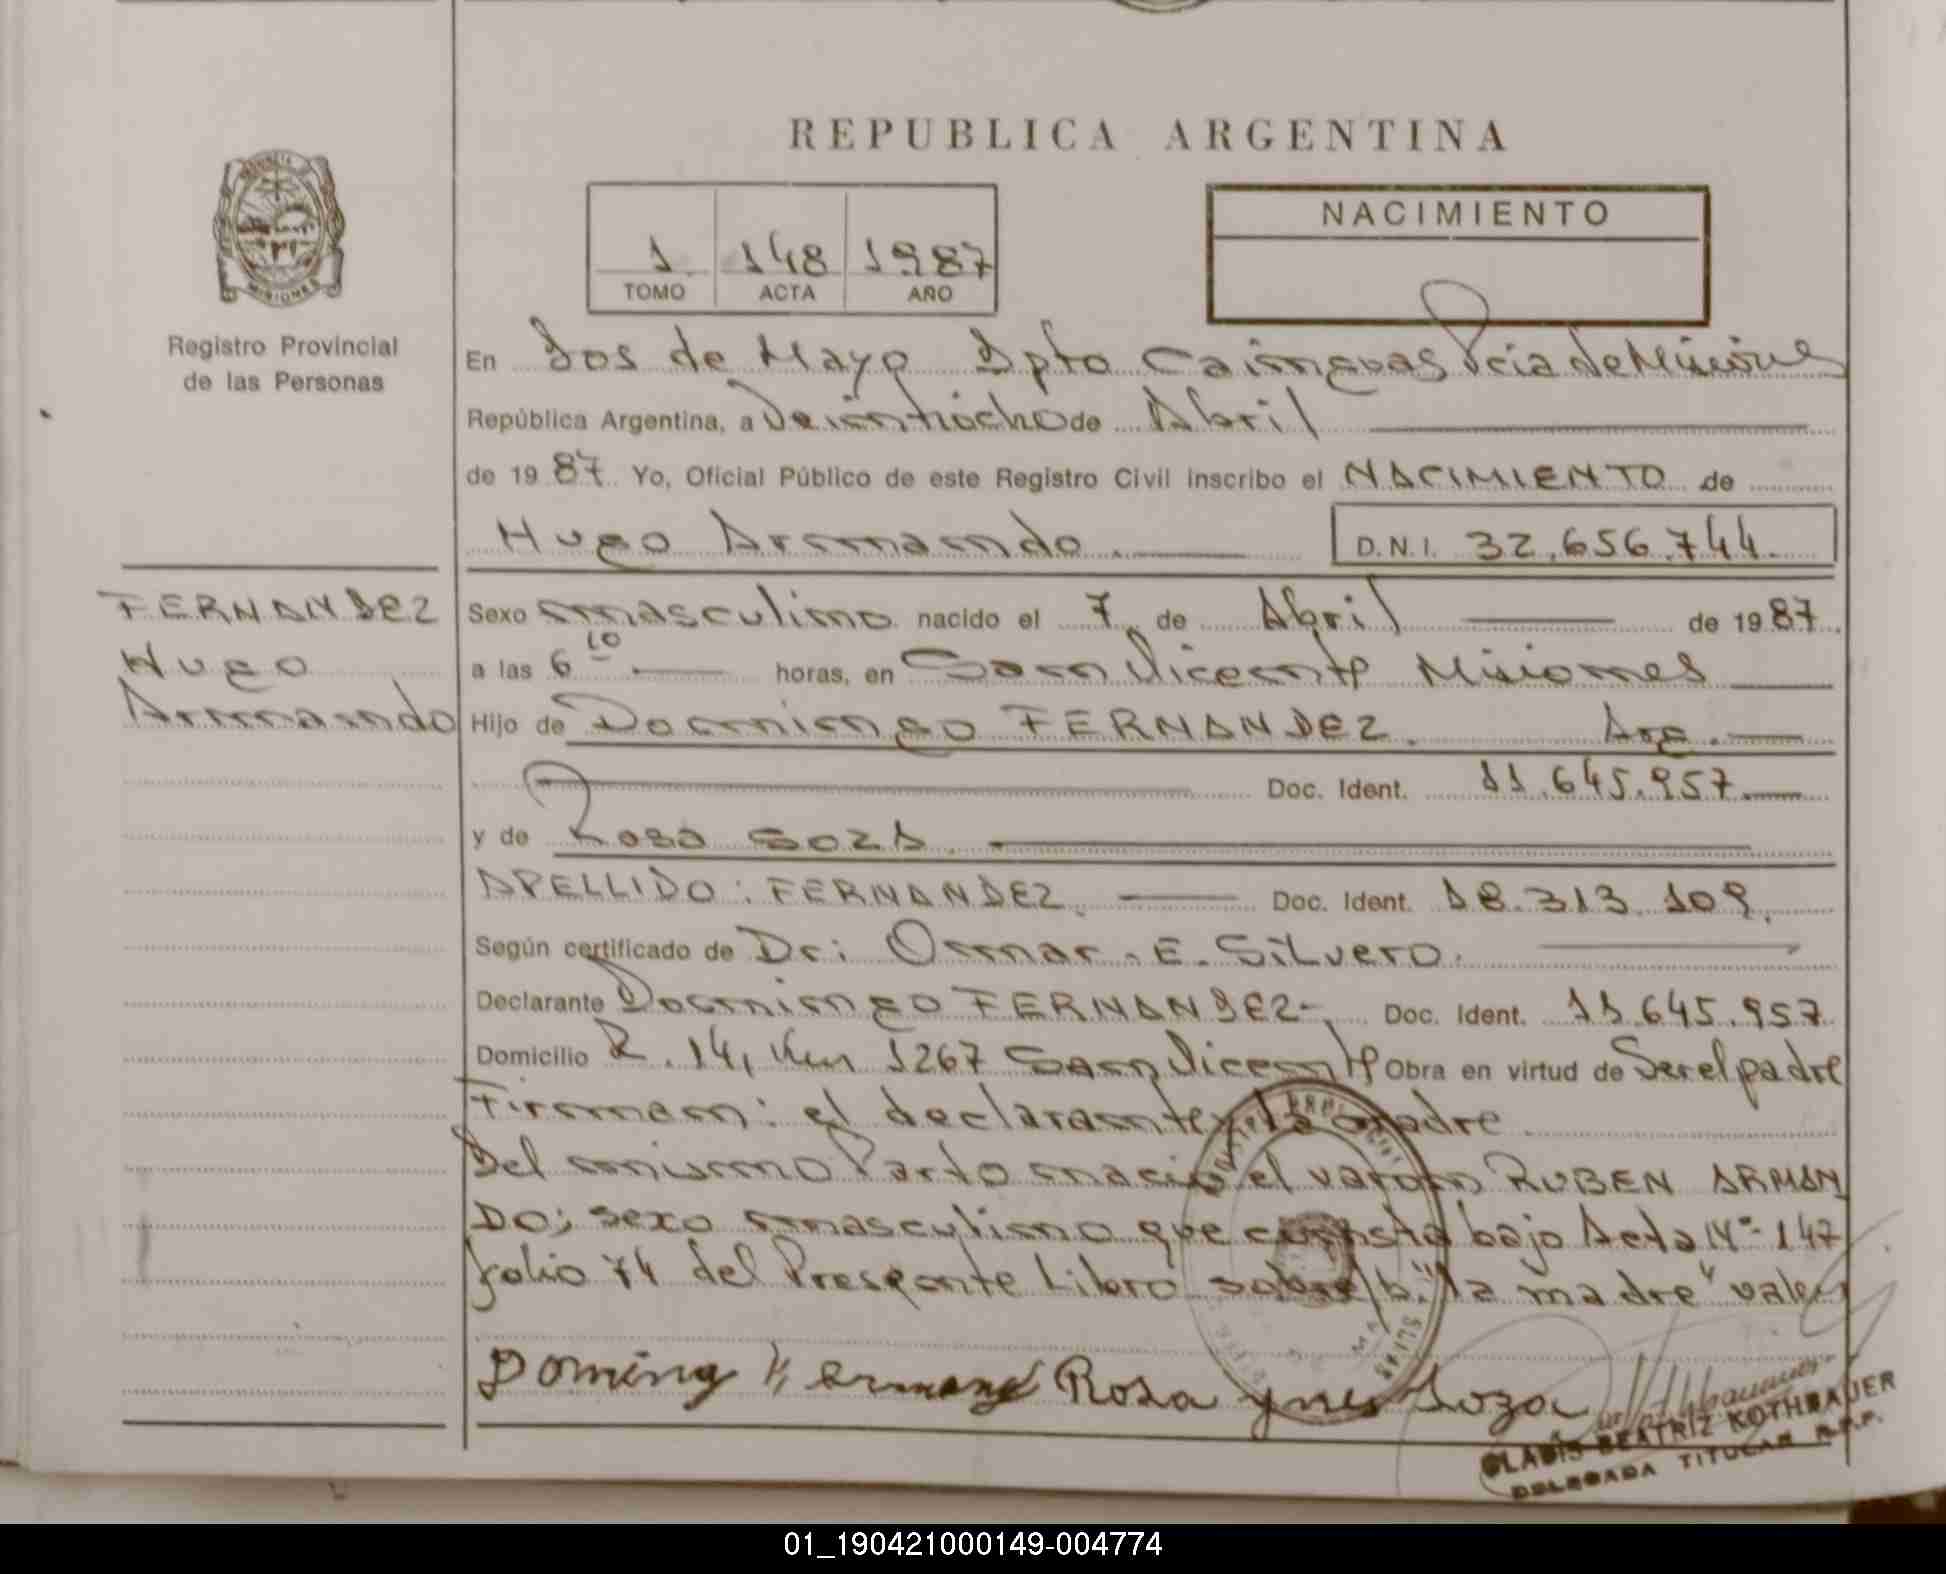 REPUBLICA ARGENTINA
MISIONES
Registro Provincial
de las Personas
1 148 1987
TOMO ACTA AÑO
NACIMIENTO
En Dos de Mayo Dpto Cainguas Pcia de Misiones
República Argentina, a Dieciocho de Abril
de 1987. Yo, Oficial Público de este Registro Civil inscribo el NACIMIENTO de
Hugo Armando. D.N.I. 32.656.744.
FERNANDEZ
Hugo
Armando
Sexo masculino nacido el 7 de Abril de 1987.
a las 6 10 horas, en San Vicente Misiones
Hijo de Domingo FERNANDEZ. Arg.
Doc. Ident. 11.645.957.
y de Rosa SOZA.
APELLIDO: FERNANDEZ. Doc. Ident. 18.313.109.
Según certificado de Dr: Omar. E. Silvero.
Declarante Domingo FERNANDEZ-. Doc. Ident. 11.645.957
Domicilio R. 14, Km 1267 San Vicente Obra en virtud de Ser el padre
Firman: el declarante y la madre
Del mismo Parto nacio el varon RUBEN ARMAN
DO; sexo masculino que consta bajo Acta Nº 147
folio 74 del Presente Libro sobre/b. "la madre" vale
Domingo Fernandez Rosa Ynes Soza
GLADIS BEATRIZ KOTHBAUER
DELEGADA TITULAR R.P.P.
01_190421000149-004774